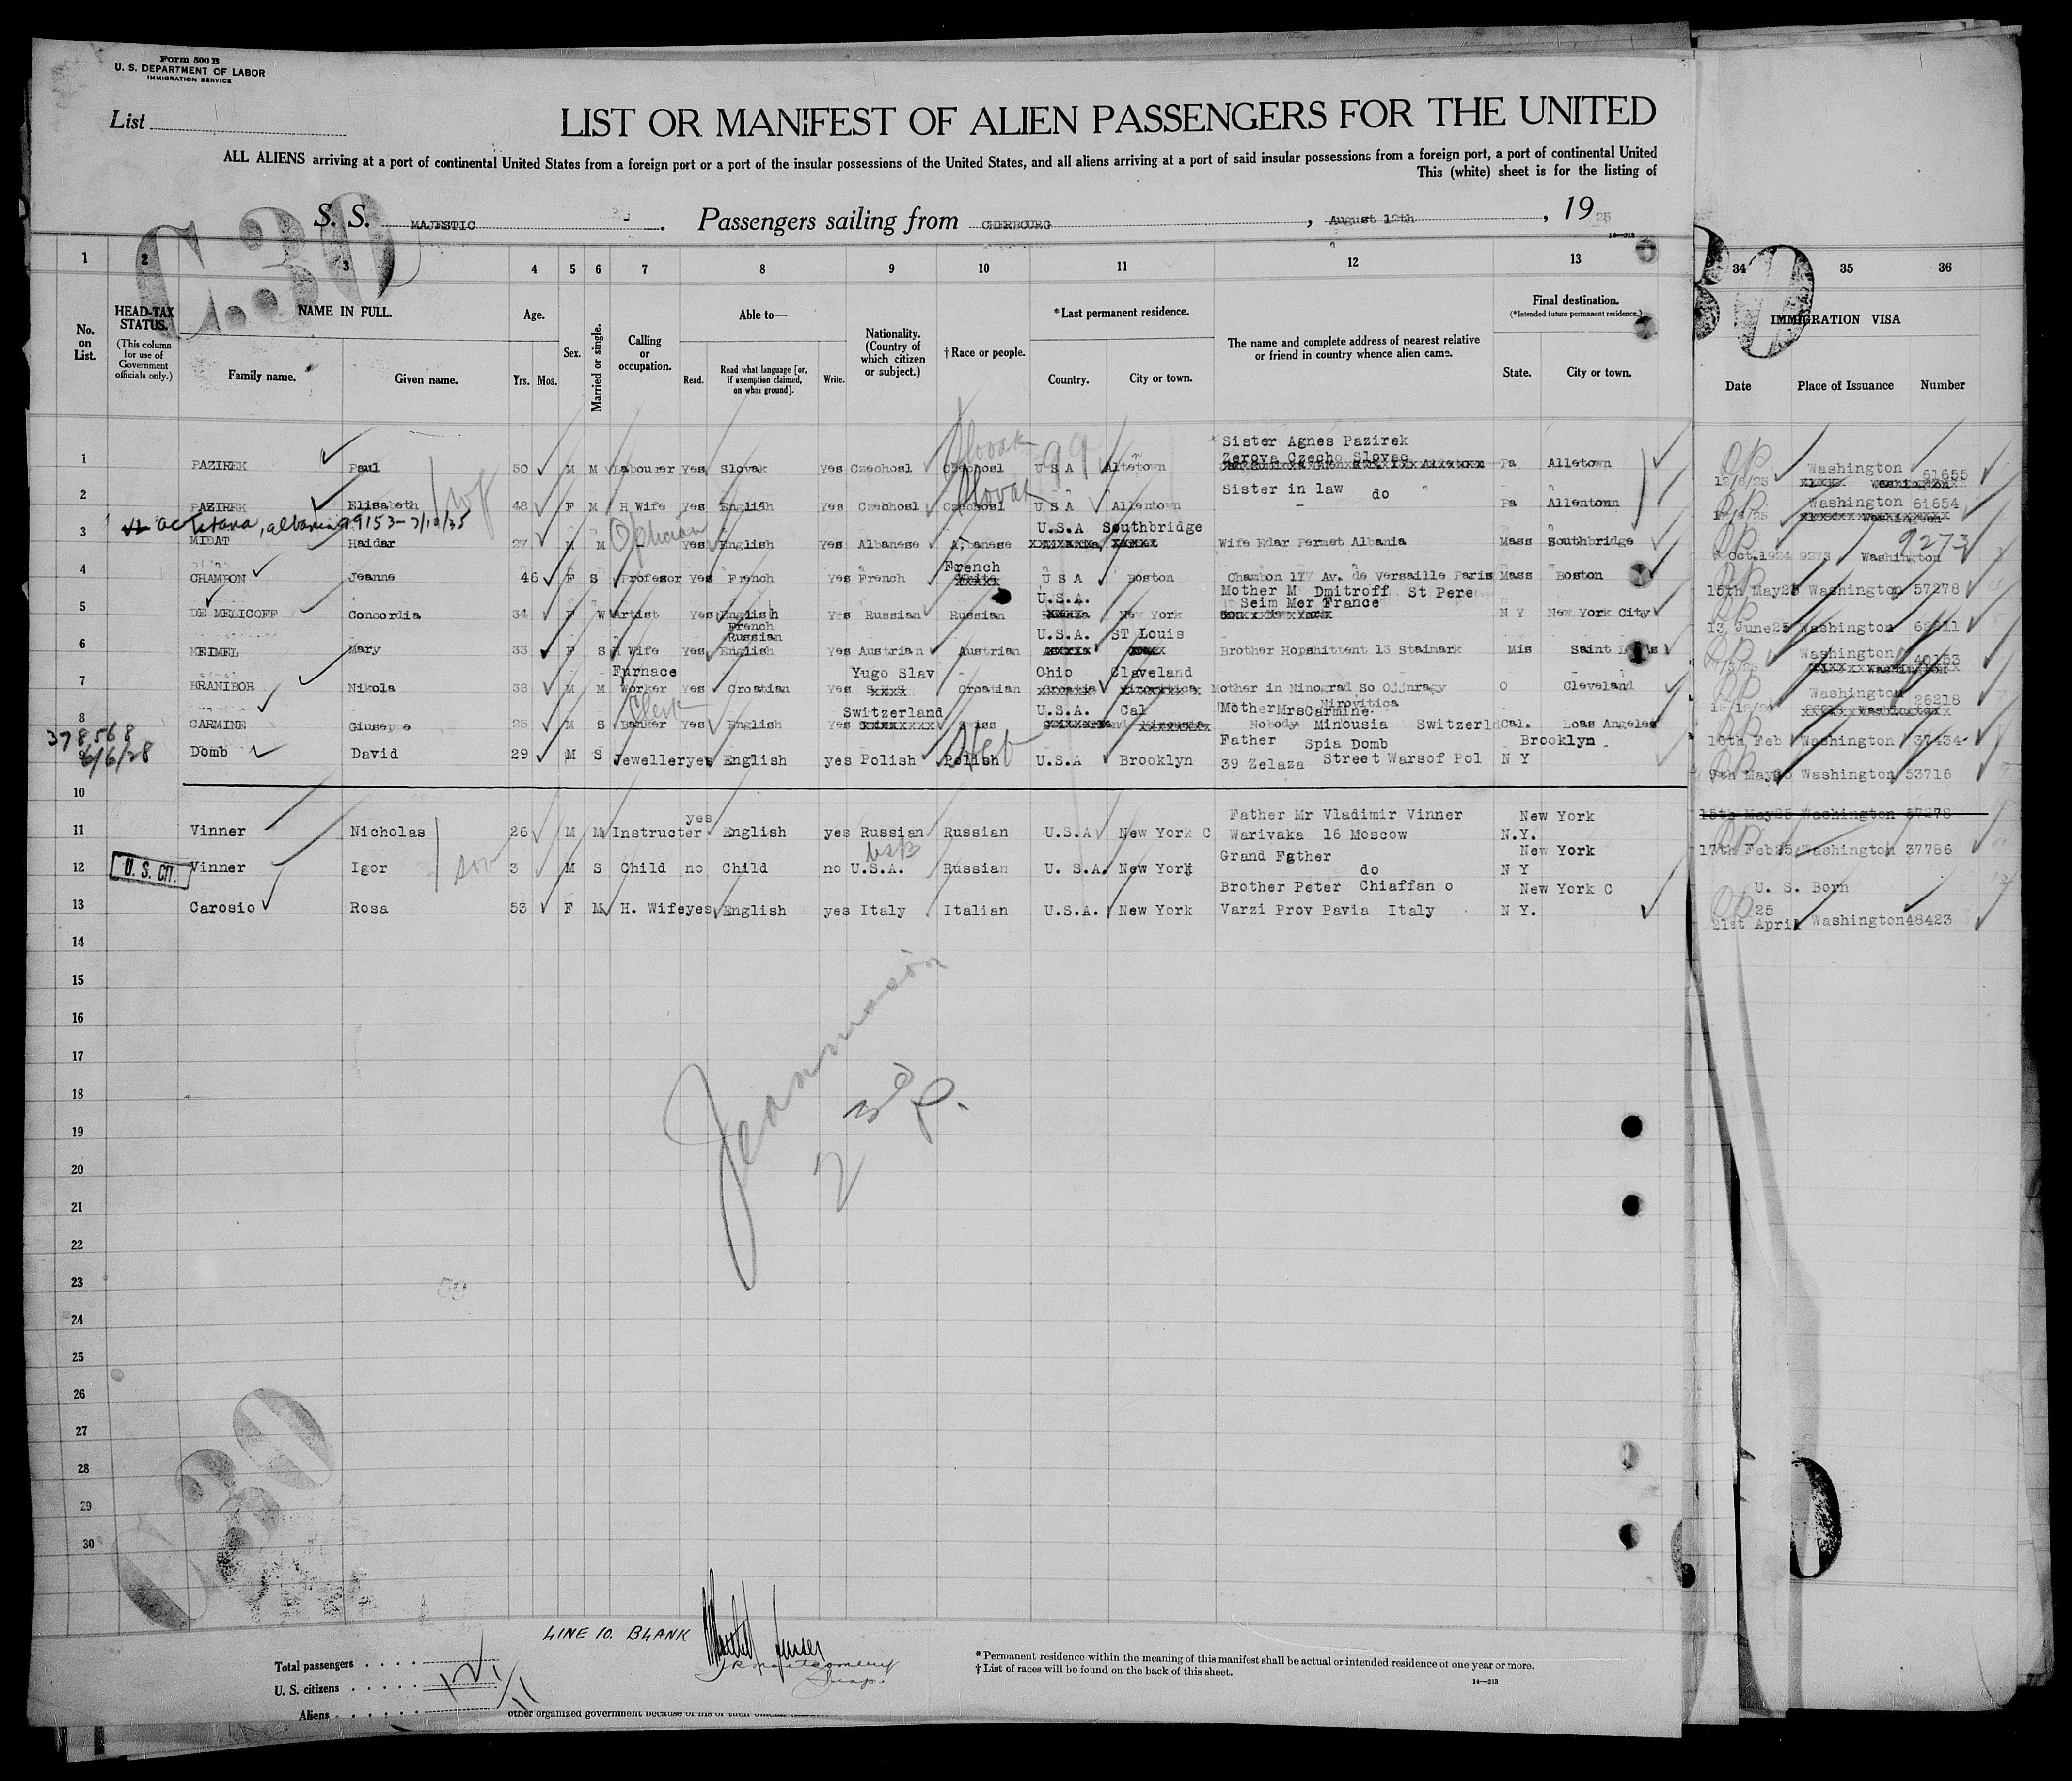 Form 500 B
U. S. DEPARTMENT OF LABOR
IMMIGRATION SERVICE
List
LIST OR MANIFEST OF ALIEN PASSENGERS FOR THE UNITED
ALL ALIENS arriving at a port of continental United States from a foreign port or a port of the insular possessions of the United States, and all aliens arriving at a port of said insular possessions from a foreign port, a port of continental United
This (white) sheet is for the listing of
C.30
S. S. MAJESTIC. Passengers sailing from CHERBOURG, August 12th, 1925
14—213
1 2 3 4 5 6 7 8 9 10 11 12 13 34 35 36
No. on List.
HEAD-TAX STATUS.
(This column for use of Government officials only.)
NAME IN FULL.
Family name. Given name.
Age.
Yrs. Mos.
Sex.
Married or single.
Calling or occupation.
Able to—
Read. Read what language [or, if exemption claimed, on what ground]. Write.
Nationality. (Country of which citizen or subject.)
†Race or people.
*Last permanent residence.
Country. City or town.
The name and complete address of nearest relative or friend in country whence alien came.
Final destination.
(*Intended future permanent residence.)
State. City or town.
IMMIGRATION VISA
Date Place of Issuance Number
Slovak 99 Sister Agnes Pazirek
Zerova Czecho Slovac
1 PAZIREK Paul 50 M M Labourer Yes Slovak Yes Czechosl Czechosl U S A Alletown Pa Alletown Washington 61655
wf Slovak Sister in law do
2 PAZIREK Elisabeth 48 F M H Wife Yes English Yes Czechosl Czechosl U S A Allentown Pa Allentown Washington 61654
Albania 79153-7/10/35
Optician U.S.A Southbridge
3 MIDAT Haidar 27 M M Yes English Yes Albanese Albanese Wife Edar Permet Albania Mass Southbridge Oct.1924 9273 Washington 9273
French
4 CHAMBON Jeanne 46 F S Profesor Yes French Yes French U S A Boston Chambon 177 Av. de Versaille Paris Mass Boston 15th May25 Washington 57278
U.S.A. Mother M Dmitroff St Pere
Seim Mer France
5 DE MELICOFF Concordia 34 F W Artist Yes English Yes Russian Russian New York N Y New York City 13 June25 Washington
French
Russian U.S.A. ST Louis
6 KEIMEL Mary 33 F S H Wife Yes English Yes Austrian Austrian Brother Hopshittent 13 Staimark Mis Saint Louis Washington 40153
Furnace Yugo Slav Ohio Cleveland
7 BRANIBOR Nikola 38 M M Worker Yes Croatian Yes Croatian Mother in Ninograd So Ojjnragy O Cleveland Washington 26218
Nirovitica
Clerk Switzerland U.S.A. Cal Mother MrsCarmine
8 CARMINE Giuseppe 25 M S Banker Yes English Yes Swiss Nobody Minousia Switzerld Cal. Loas Angeles 16th Feb Washington 37434
378568
6/6/28
Heb Father Spia Domb Brooklyn
9 Domb David 29 M S Jeweller yes English yes Polish Polish U.S.A Brooklyn 39 Zelaza Street Warsof Pol N Y 9th May25 Washington 53716
10 15th May25 Washington 57278
yes Father Mr Vladimir Vinner New York
11 Vinner Nicholas 26 M M Instructer English yes Russian Russian U.S.A New York C Warivaka 16 Moscow N.Y. 17th Feb25 Washington 37786
son USB Grand Father New York
12 U. S. CIT. Vinner Igor 3 M S Child no Child no U.S.A. Russian U. S.A. New York do N Y U. S. Born
Brother Peter Chiaffan o New York C
13 Carosio Rosa 53 F M H. Wife yes English yes Italy Italian U.S.A. New York Varzi Prov Pavia Italy N Y. 21st April 25 Washington 48423
14
15
16
17
18
19
20
21
22
23
24
25
26
27
28
29
30
C30
LINE 10. BLANK
Total passengers
U. S. citizens
Aliens
*Permanent residence within the meaning of this manifest shall be actual or intended residence of one year or more.
†List of races will be found on the back of this sheet.
14—213